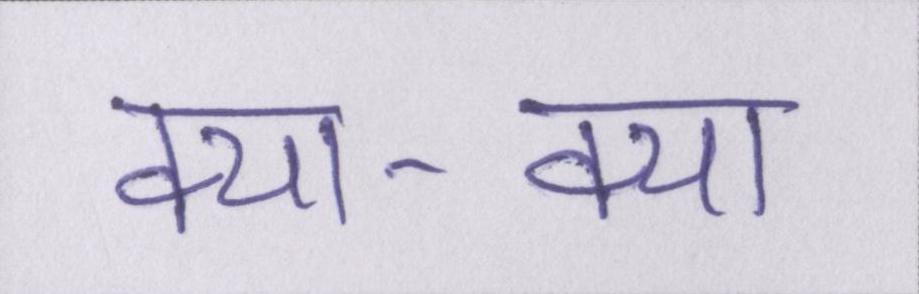 क्या- क्या